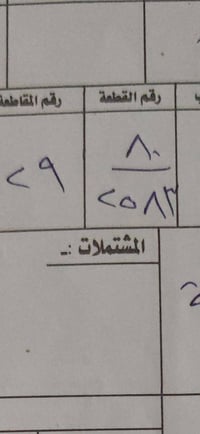 رقم القطعة رقم المقاطعة
٨٠
٢٥٨٣ ٢٩
المشتملات :ـ